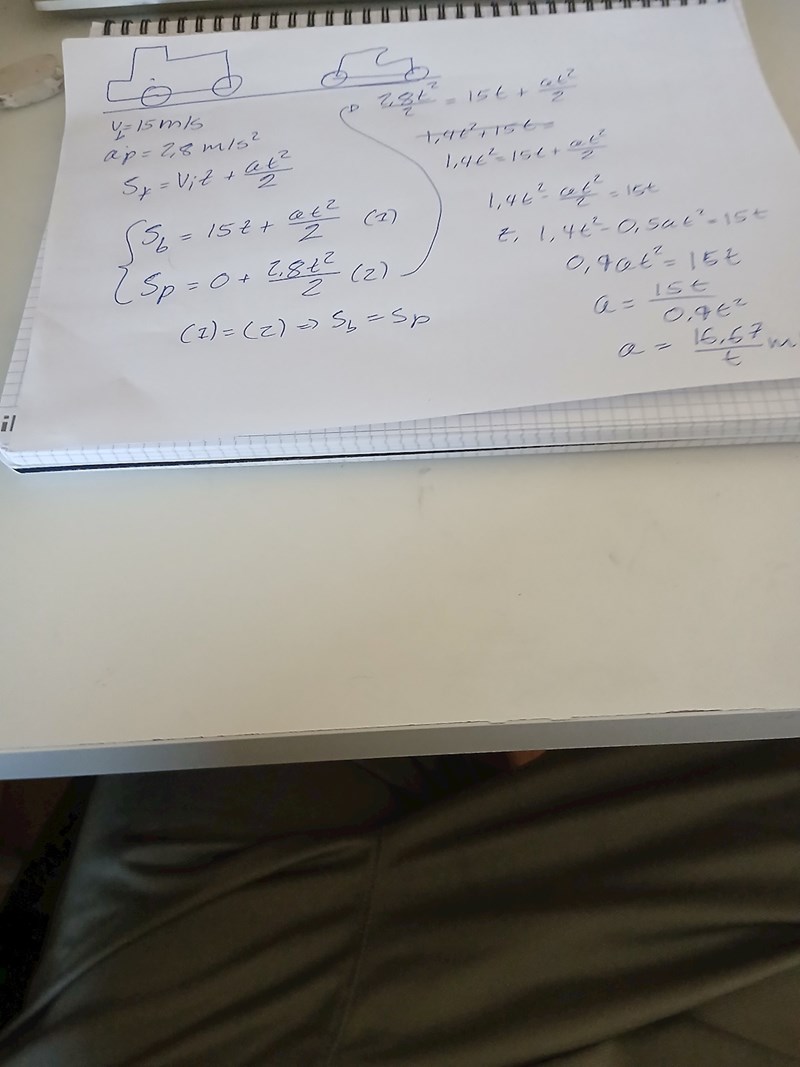 v_b = 15 m/s
a_p = 2,8 m/s²
S_x = V_i t + at²/2
S_b = 15t + at²/2 (1)
S_p = 0 + 2,8t²/2 (2)
(1) = (2) => S_b = S_p
2,8t²/2 = 15t + at²/2
1,4t² + 15t =
1,4t² = 15t + at²/2
1,4t² - at²/2 = 15t
1,4t² - 0,5at² = 15t
0,9at² = 15t
a = 15t/0,9t²
a = 16,67/t m
il